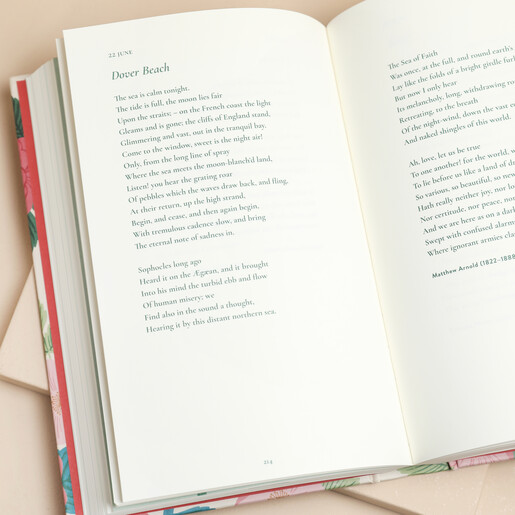 22 JUNE
Dover Beach
The sea is calm tonight.
The tide is full, the moon lies fair
Upon the straits; – on the French coast the light
Gleams and is gone; the cliffs of England stand,
Glimmering and vast, out in the tranquil bay.
Come to the window, sweet is the night air!
Only, from the long line of spray
Where the sea meets the moon-blanch'd land,
Listen! you hear the grating roar
Of pebbles which the waves draw back, and fling,
At their return, up the high strand,
Begin, and cease, and then again begin,
With tremulous cadence slow, and bring
The eternal note of sadness in.
Sophocles long ago
Heard it on the Ægæan, and it brought
Into his mind the turbid ebb and flow
Of human misery; we
Find also in the sound a thought,
Hearing it by this distant northern sea.
214
The Sea of Faith
Was once, at the full, and round earth's
Lay like the folds of a bright girdle fur
But now I only hear
Its melancholy, long, withdrawing ro
Retreating, to the breath
Of the night-wind, down the vast e
And naked shingles of this world.
Ah, love, let us be true
To one another! for the world, w
To lie before us like a land of dr
So various, so beautiful, so new
Hath really neither joy, nor lo
Nor certitude, nor peace, nor
And we are here as on a dark
Swept with confused alarm
Where ignorant armies cla
Matthew Arnold (1822–1888